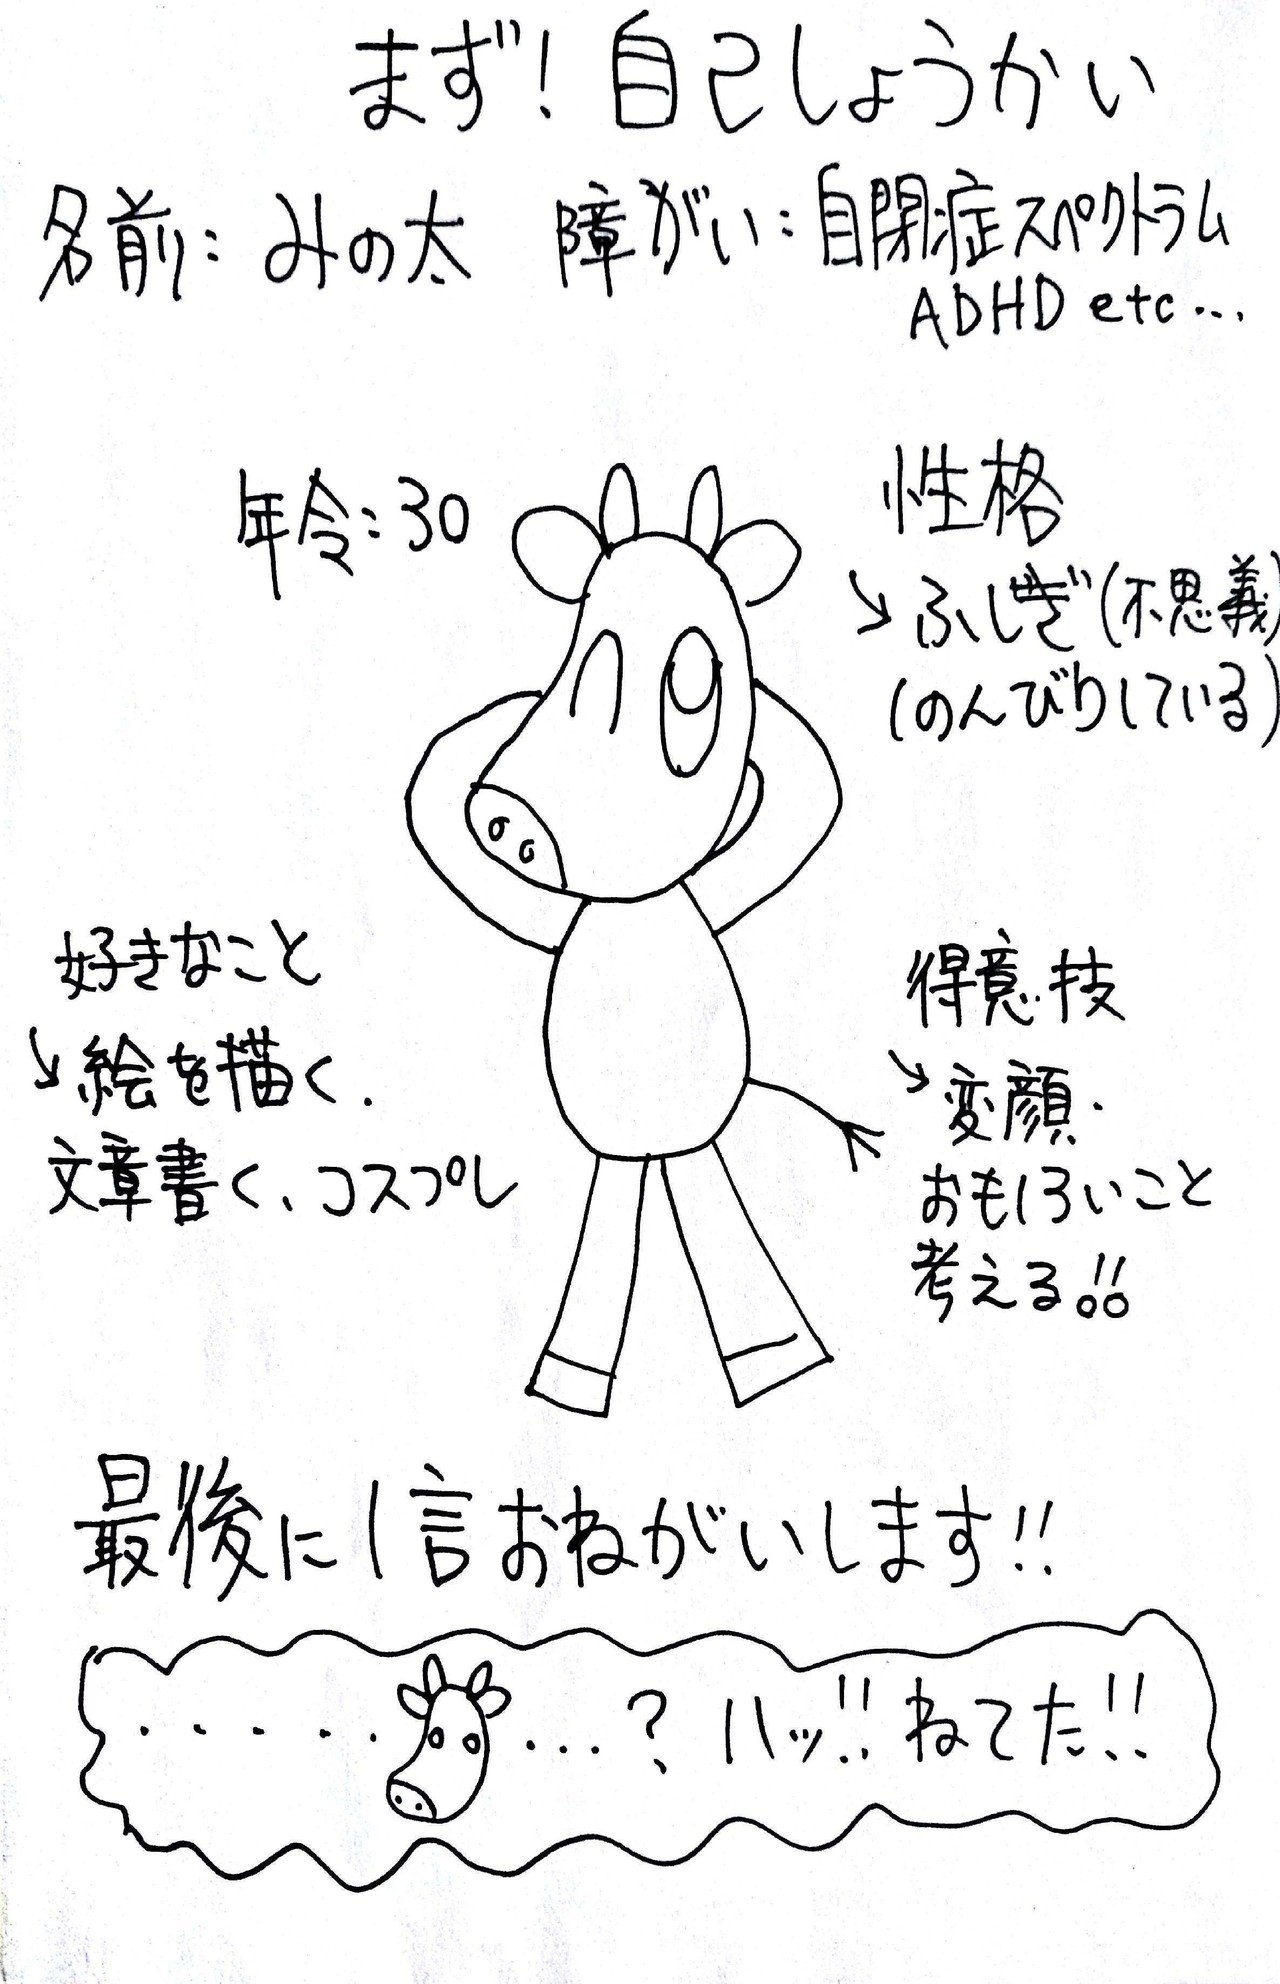 まず!自己しょうかい
名前:みの太 障がい:自閉症スペクトラム
ADHD etc...
年令:30
性格
↘ふしぎ(不思義)
(のんびりしている)
好きなこと
↘絵を描く、
文章書く、コスプレ
得意技
↘変顔・
おもしろいこと
考える!!
最後に1言おねがいします!!
・・・・・...?ハッ!!ねてた!!